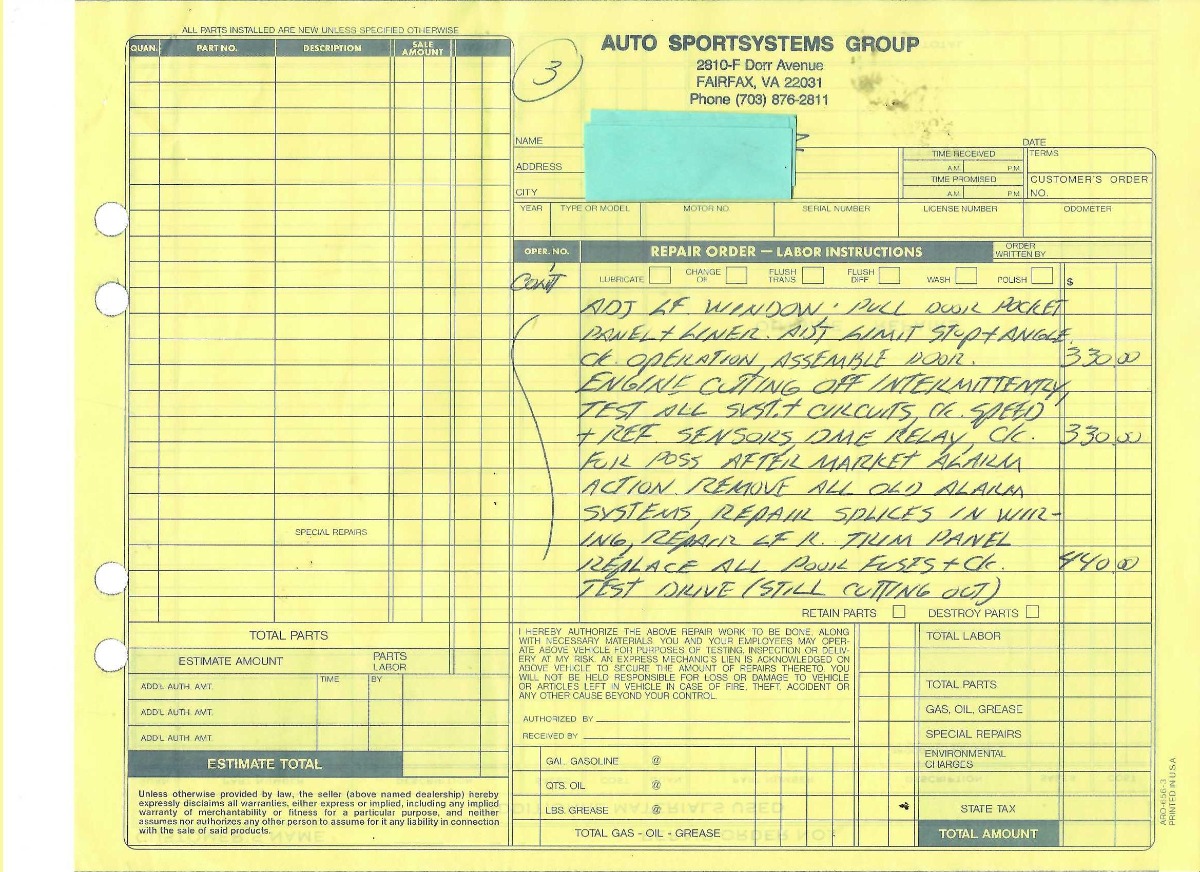 ALL PARTS INSTALLED ARE NEW UNLESS SPECIFIED OTHERWISE
QUAN. PART NO. DESCRIPTION SALE AMOUNT
SPECIAL REPAIRS
TOTAL PARTS
ESTIMATE AMOUNT PARTS LABOR
ADD'L AUTH. AMT. TIME BY
ADD'L AUTH. AMT.
ADD'L AUTH. AMT.
ESTIMATE TOTAL
Unless otherwise provided by law, the seller (above named dealership) hereby
expressly disclaims all warranties, either express or implied, including any implied
warranty of merchantability or fitness for a particular purpose, and neither
assumes nor authorizes any other person to assume for it any liability in connection
with the sale of said products.
3
AUTO SPORTSYSTEMS GROUP
2810-F Dorr Avenue
FAIRFAX, VA 22031
Phone (703) 876-2811
NAME DATE
ADDRESS TIME RECEIVED A.M. P.M. TERMS
CITY TIME PROMISED A.M. P.M. CUSTOMER'S ORDER NO.
YEAR TYPE OR MODEL MOTOR NO. SERIAL NUMBER LICENSE NUMBER ODOMETER
OPER. NO. REPAIR ORDER — LABOR INSTRUCTIONS ORDER WRITTEN BY
CON'T LUBRICATE CHANGE OF FLUSH TRANS FLUSH DIFF. WASH POLISH $
ADJ LF. WINDOW: PULL DOOR POCKET
PANEL + LINER. ADJ LIMIT STOP + ANGLE
CK. OPERATION, ASSEMBLE DOOR. 330.00
ENGINE CUTTING OFF INTERMITTENTLY,
TEST ALL SYST. + CIRCUITS, CK. SPEED
+ REF SENSORS, DME RELAY, CK. 330.00
FOR POSS AFTER MARKET ALARM
ACTION. REMOVE ALL OLD ALARM
SYSTEMS, REPAIR SPLICES IN WIR-
ING, REPAIR LF K. TRIM PANEL
REPLACE ALL POUR FUSES + CK. 440.00
TEST DRIVE (STILL CUTTING OUT)
RETAIN PARTS DESTROY PARTS
I HEREBY AUTHORIZE THE ABOVE REPAIR WORK TO BE DONE, ALONG
WITH NECESSARY MATERIALS. YOU AND YOUR EMPLOYEES MAY OPER-
ATE ABOVE VEHICLE FOR PURPOSES OF TESTING, INSPECTION OR DELIV-
ERY AT MY RISK. AN EXPRESS MECHANIC'S LIEN IS ACKNOWLEDGED ON
ABOVE VEHICLE TO SECURE THE AMOUNT OF REPAIRS THERETO. YOU
WILL NOT BE HELD RESPONSIBLE FOR LOSS OR DAMAGE TO VEHICLE
OR ARTICLES LEFT IN VEHICLE IN CASE OF FIRE, THEFT, ACCIDENT OR
ANY OTHER CAUSE BEYOND YOUR CONTROL.
AUTHORIZED BY
RECEIVED BY
GAL. GASOLINE @
QTS. OIL @
LBS. GREASE @
TOTAL GAS - OIL - GREASE
TOTAL LABOR
TOTAL PARTS
GAS, OIL, GREASE
SPECIAL REPAIRS
ENVIRONMENTAL CHARGES
STATE TAX
TOTAL AMOUNT
ARO-656-3
PRINTED IN U.S.A.